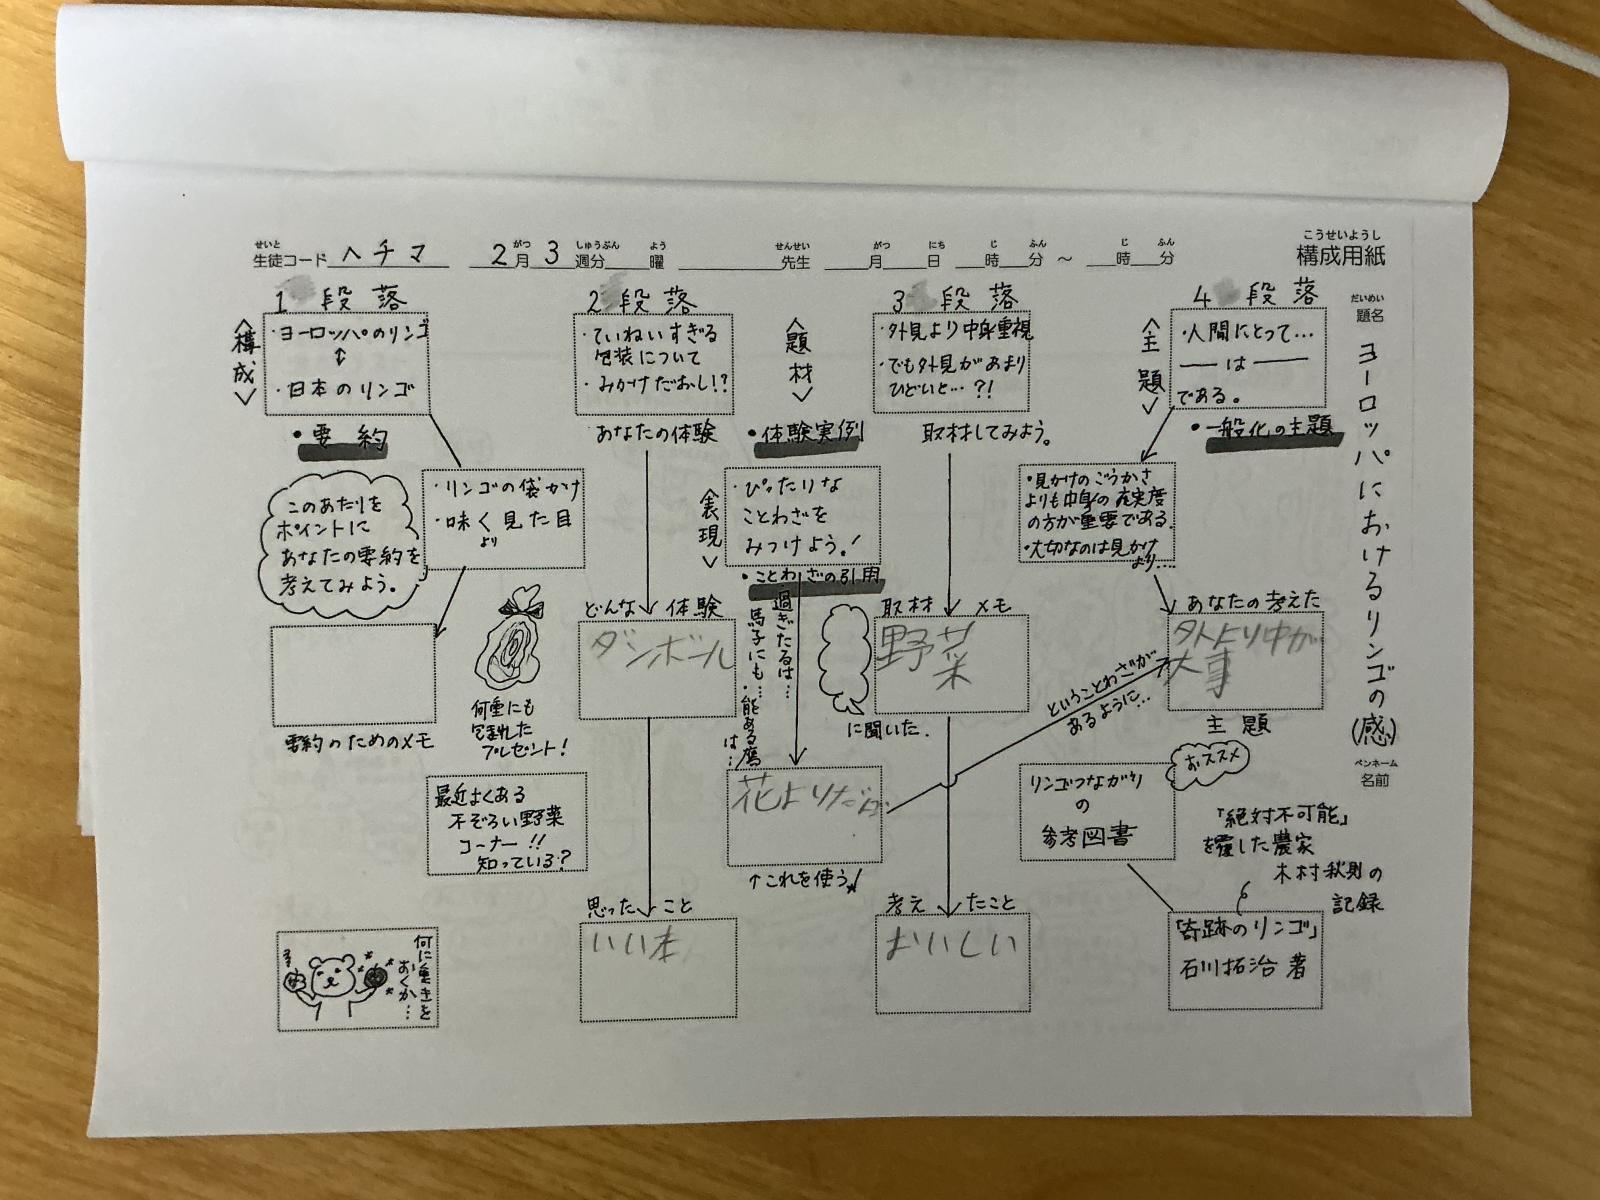 こうせいようし
構成用紙
せいと
生徒コード ヘチマ 2月 3週分 曜 先生 月 日 時 分 ～ 時 分
がつ しゅうぶん よう せんせい がつ にち じ ふん じ ふん
だいめい
題名
ヨーロッパにおけるリンゴの(感)
ペンネーム
名前
1 段落
<構成>
・ヨーロッパのリンゴ
↕
・日本のリンゴ
・要約
・リンゴの袋かけ
・味く見た目
より
このあたりを
ポイントに
あなたの要約を
考えてみよう。
要約のためのメモ
2 段落
・ていねいすぎる
包装について
・みかけだおし!?
あなたの体験
どんな体験
ダンボール
何重にも
包まれた
プレゼント!
思ったこと
いい本
<題材>
・体験実例
<表現>
・ぴったりな
ことわざを
みつけよう!
・ことわざの引用
過ぎたるは…
馬子にも…
・能ある鷹
は…
花よりだんご
↑これを使う
3 段落
・外見より中身重視
・でも外見があまり
ひどいと…?!
取材してみよう。
取材メモ
野菜
に聞いた.
考えたこと
おいしい
4 段落
<主題>
・人間にとって…
── は ──
である。
・一般化の主題
・見かけのごうかさ
よりも中身の充実度
の方が重要である.
・大切なのは見かけ
より…
あなたの考えた
外より中が
大事
主題
ということわざが
あるように…
最近よくある
不ぞろい野菜
コーナー!!
知っている?
何に重きを
おくか…
リンゴつながり
の
参考図書
おススメ
「絶対不可能」
を覆した農家
木村秋則の
記録
「奇跡のリンゴ」
石川拓治 著